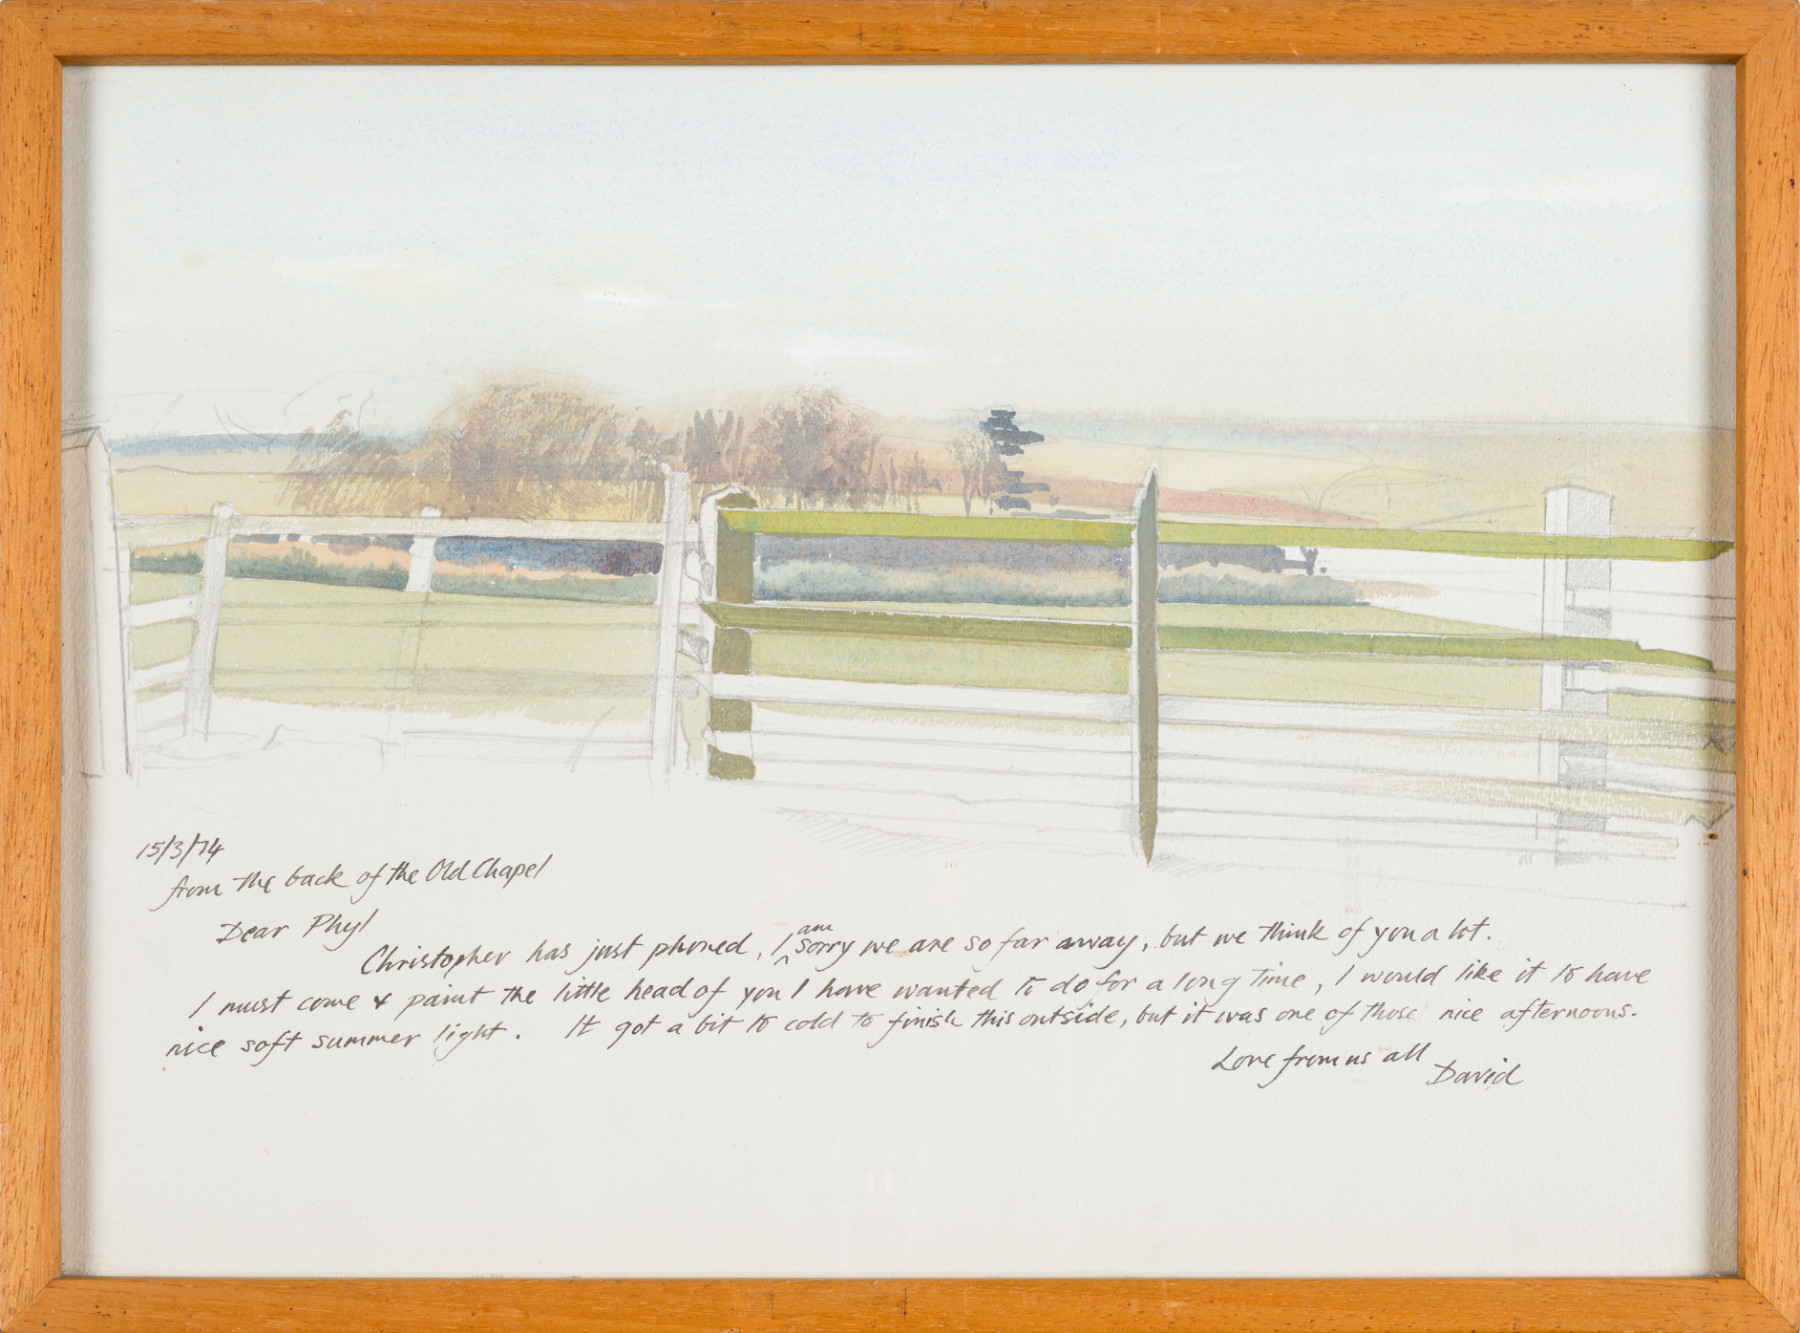 15/3/74
from the back of the Old Chapel
Dear Phyl
Christopher has just phoned, I am sorry we are so far away, but we think of you a lot.
I must come & paint the little head of you I have wanted to do for a long time, I would like it to have
nice soft summer light. It got a bit to cold to finish this outside, but it was one of those nice afternoons.
Love from us all
David